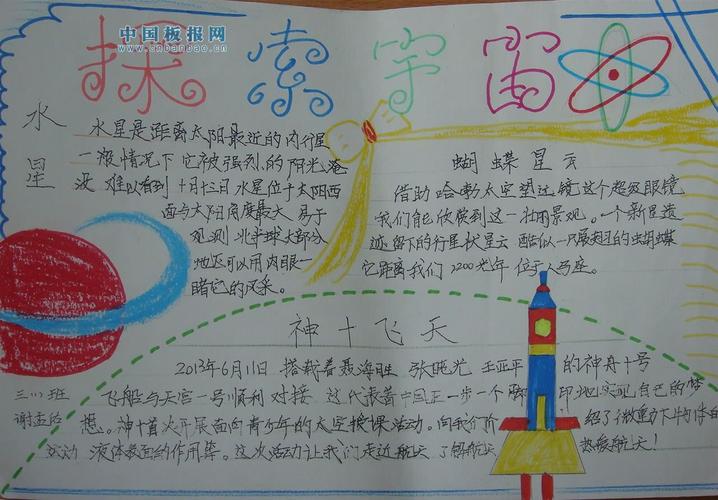 中国板报网
www.cnbanbao.cn
探索宇宙
水星
水星是距离太阳最近的内行星
一般情况下它被强烈的阳光淹
没 难以看到 十月十三日 水星位于太阳西
面与太阳角度最大 易于
观测 北半球大部分
地区可以用肉眼一
睹它的风采。
蝴蝶星云
借助哈勃太空望远镜这个超级眼镜
我们能欣赏到这一壮丽景观。一个新星遗
迹留下的行星状星云 酷似一只展翅的蝴蝶
它距离我们1200光年 位于人马座。
神十飞天
2013年6月11日 搭载着聂海胜 张晓光 王亚平 的神舟十号
飞船与天宫一号顺利对接 这代表着中国正一步一个脚印地实现自己的梦
想。神十首次开展面向青少年的太空授课活动。向我们介绍了微重力下物体
运动 液体表面的作用等。这次活动让我们走近航天 了解航天 热爱航天！
三（1）班
谢